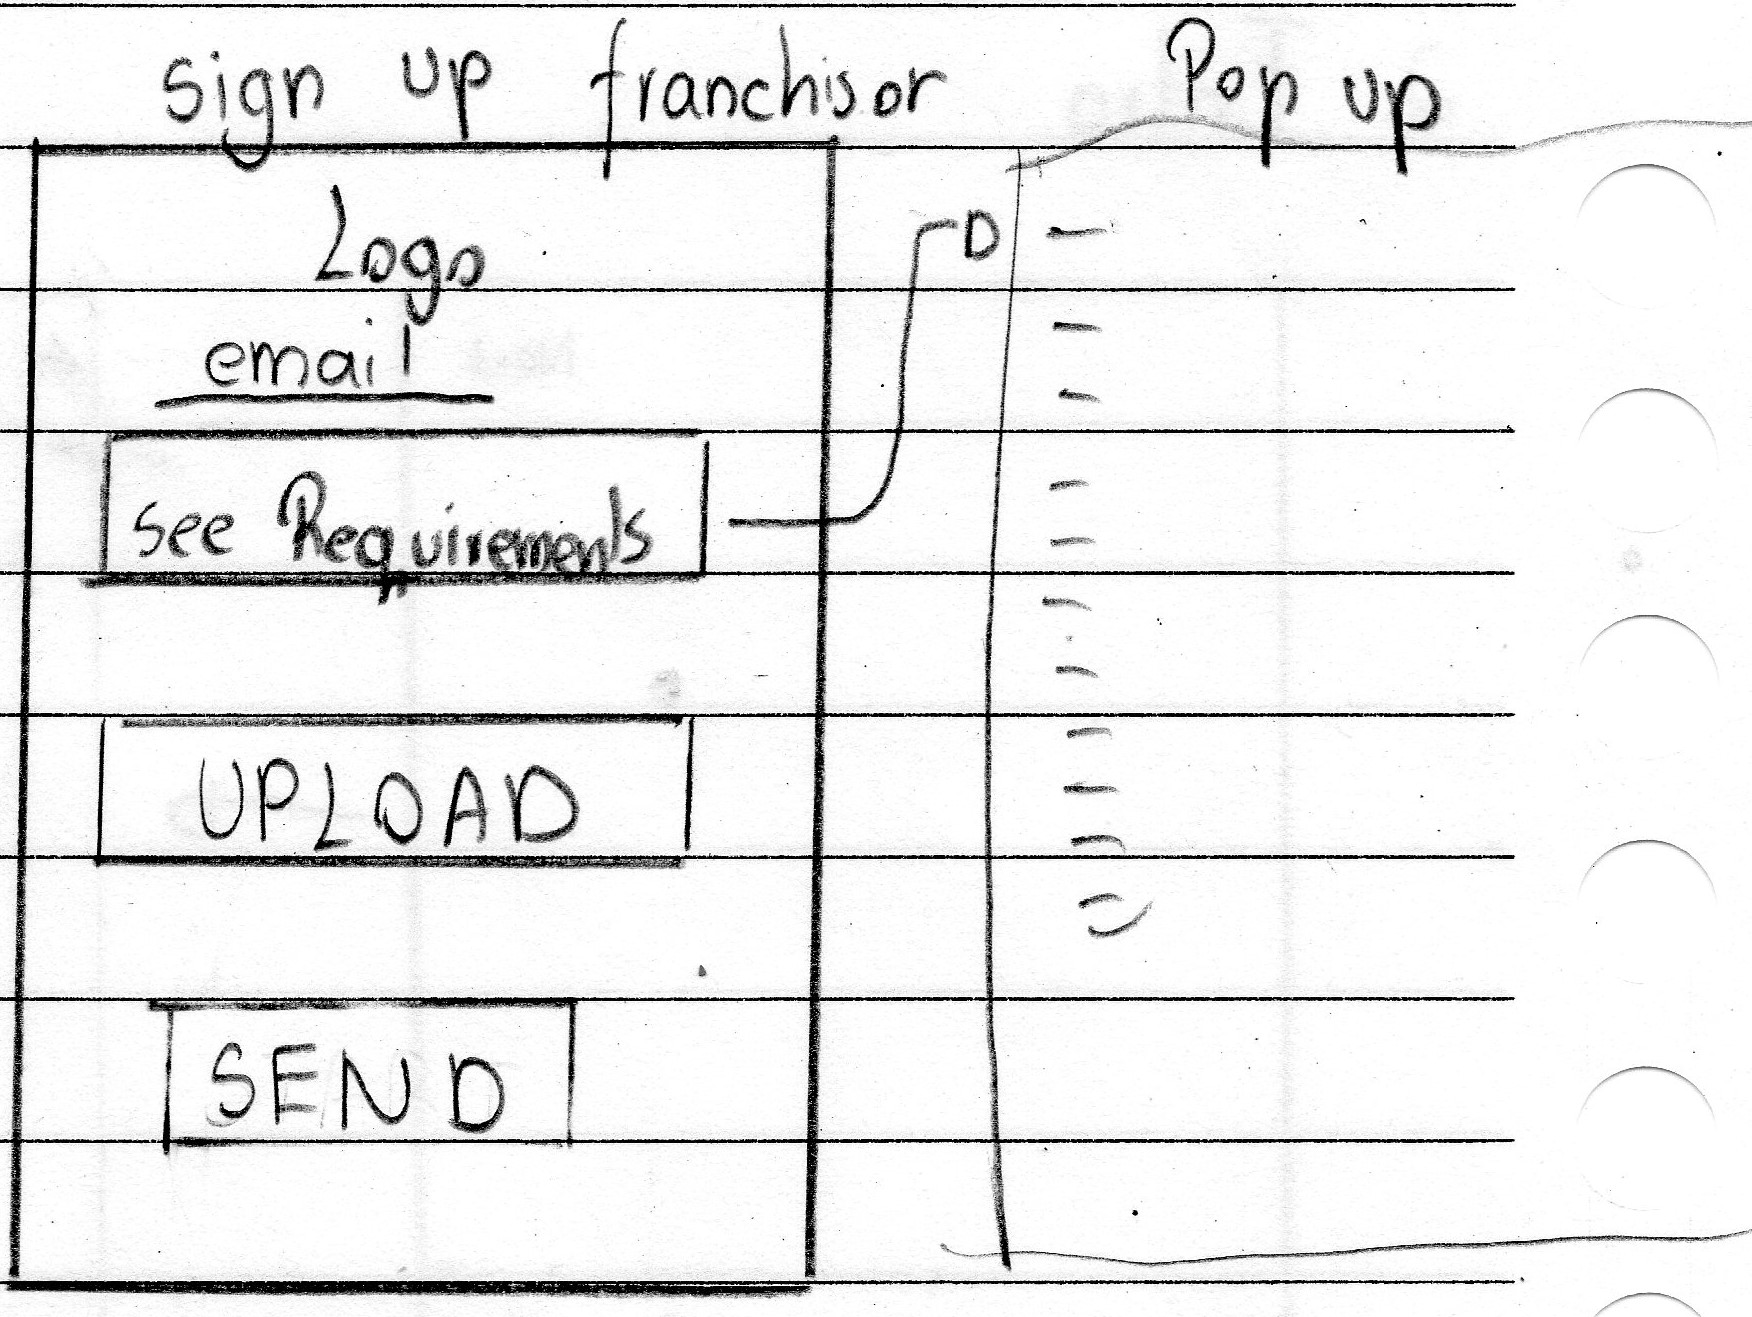 sign up franchisor
Pop up
Logo
email
see Requirements
UPLOAD
SEND